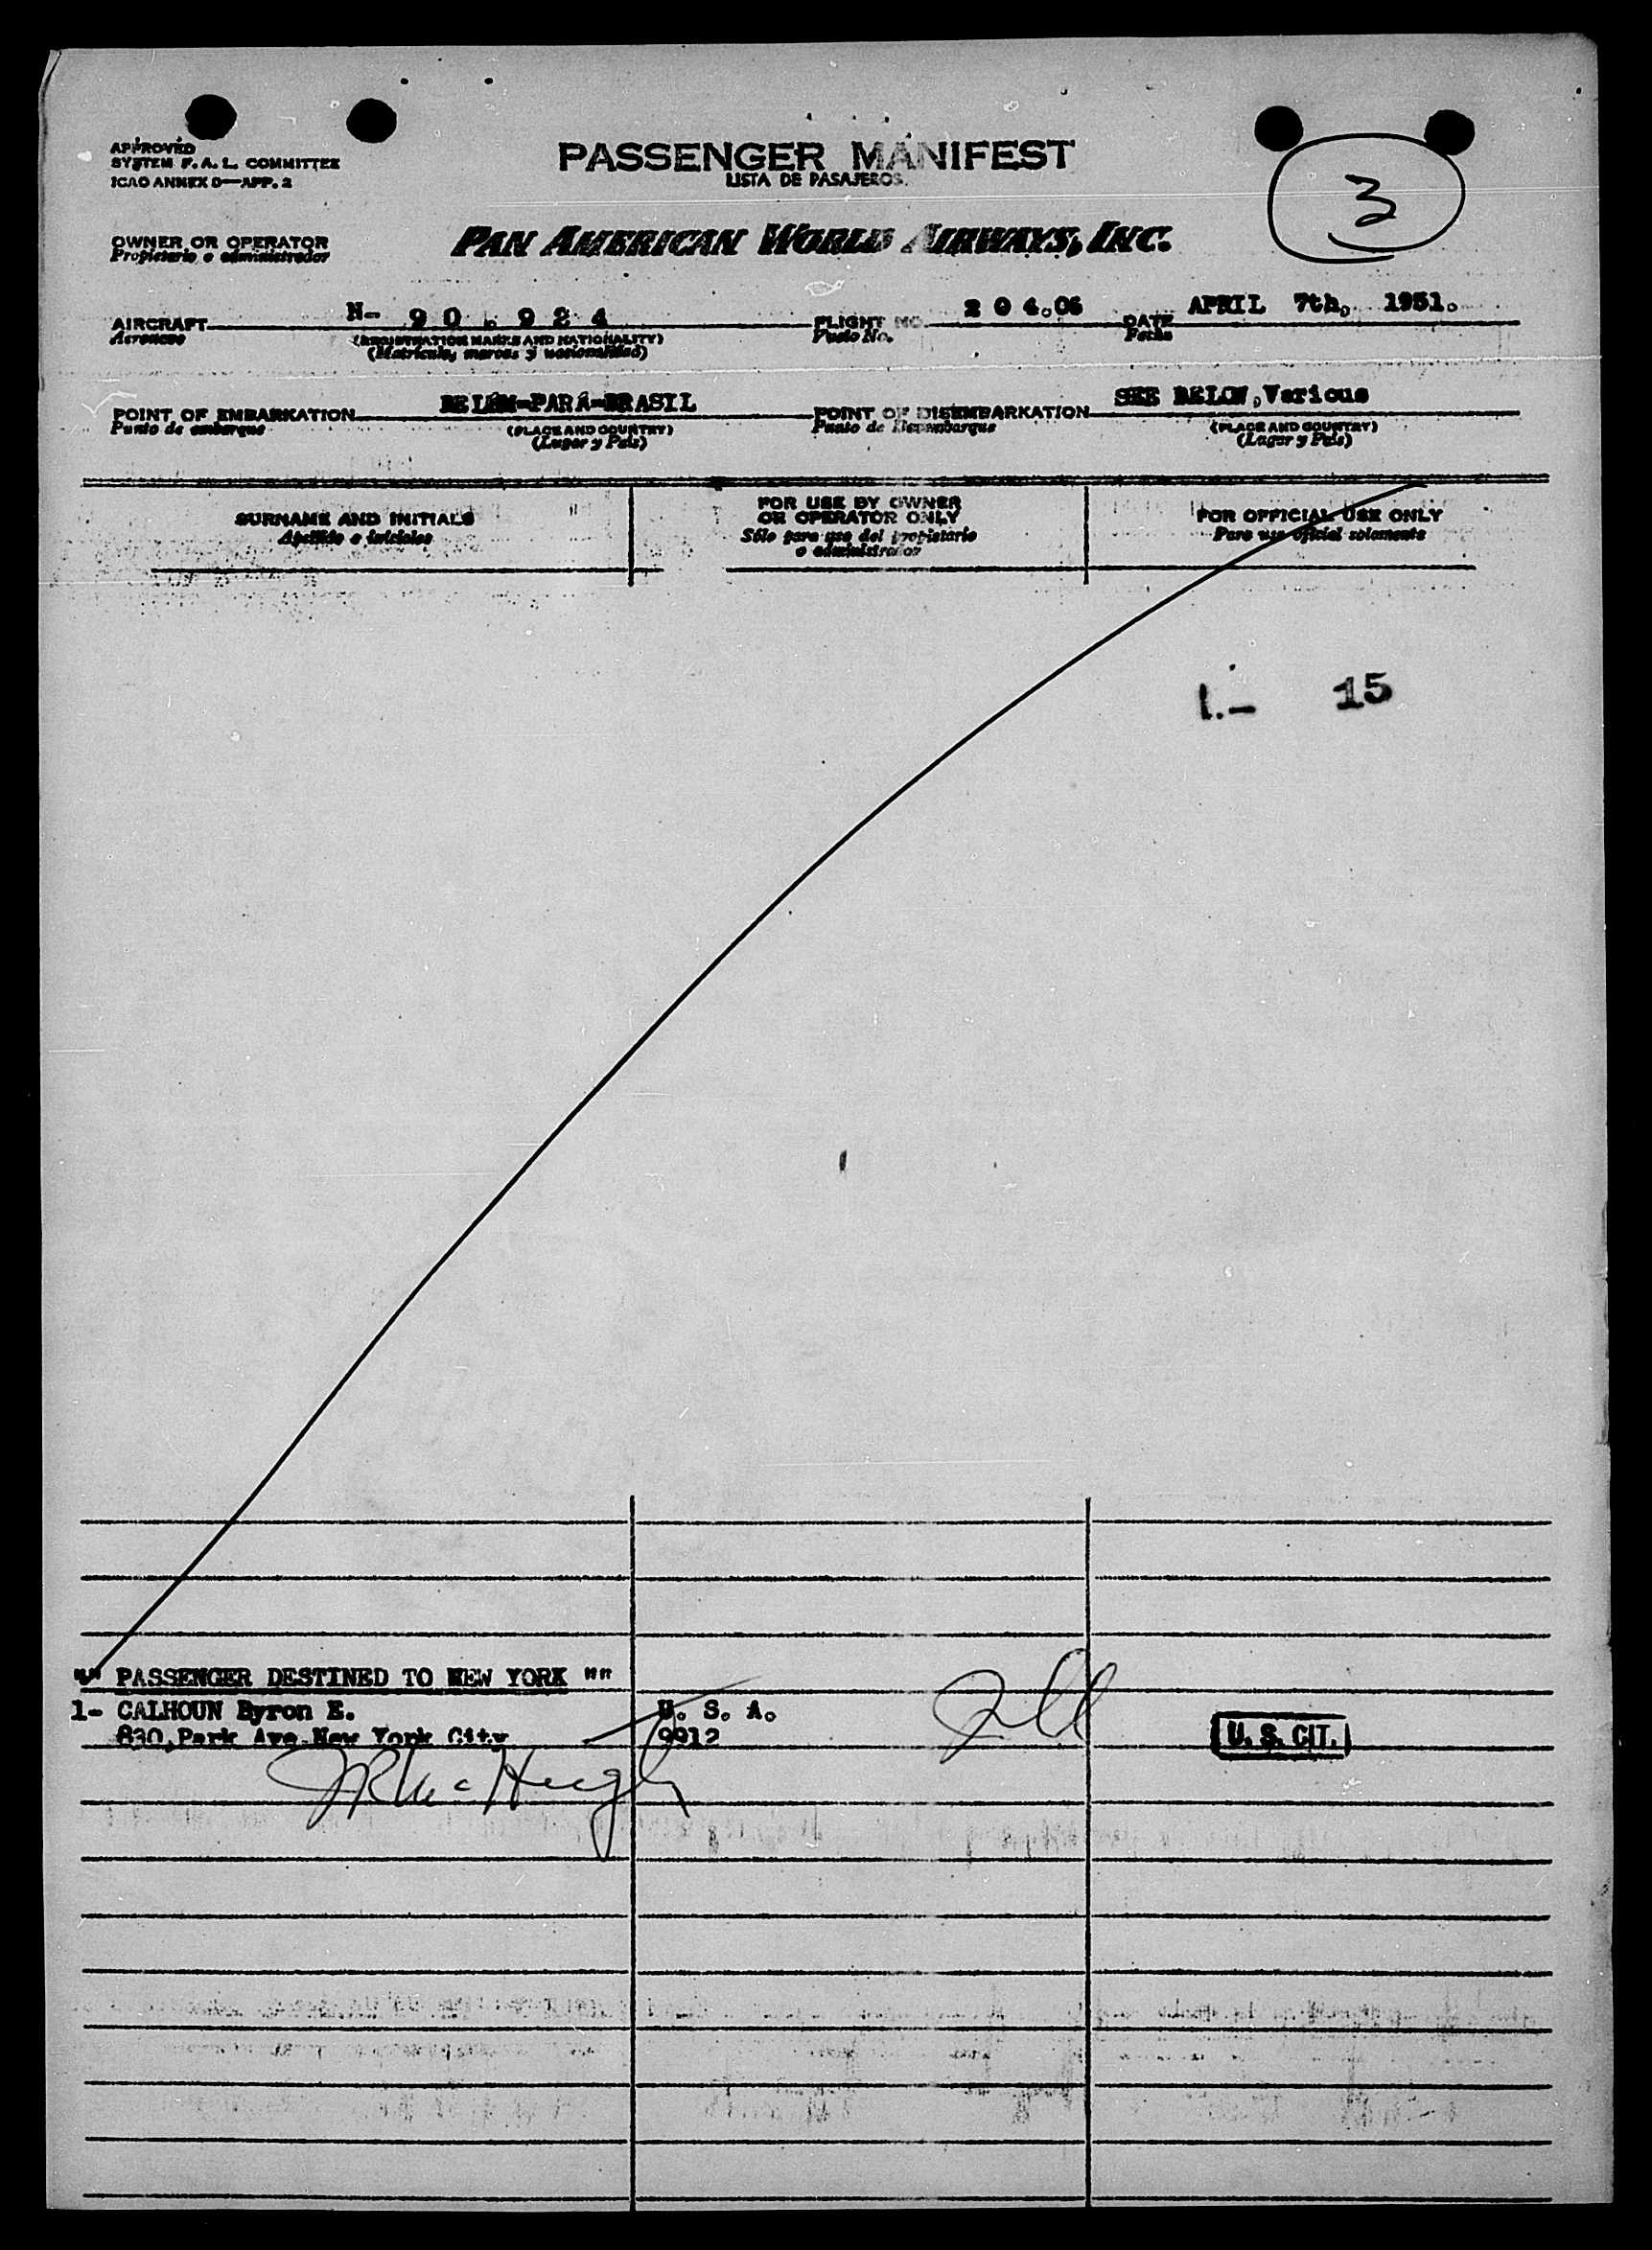 APPROVED
SYSTEM F. A. L. COMMITTEE
ICAO ANNEX 9—APP. 2
PASSENGER MANIFEST
LISTA DE PASAJEROS.
3
OWNER OR OPERATOR
Propietario o administrador
PAN AMERICAN WORLD AIRWAYS, INC.
AIRCRAFT N- 90.924 FLIGHT NO. 204.06 DATE APRIL 7th, 1951.
Aeronave (REGISTRATION MARKS AND NATIONALITY) Vuelo No. Fecha
(Matrícula, marcas y nacionalidad)
POINT OF EMBARKATION BELÉM-PARÁ-BRASIL POINT OF DISEMBARKATION SEE BELOW, Various
Punto de embarque (PLACE AND COUNTRY) Punto de Desembarque (PLACE AND COUNTRY)
(Lugar y País) (Lugar y País)
SURNAME AND INITIALS FOR USE BY OWNER OR OPERATOR ONLY FOR OFFICIAL USE ONLY
Apellido e iniciales Sólo para uso del propietario o administrador Para uso oficial solamente
1.- 15
"" PASSENGER DESTINED TO NEW YORK ""
1- CALHOUN Byron E. U. S. A.
830, Park Ave New York City 9912 U. S. CIT.
JR McHugh